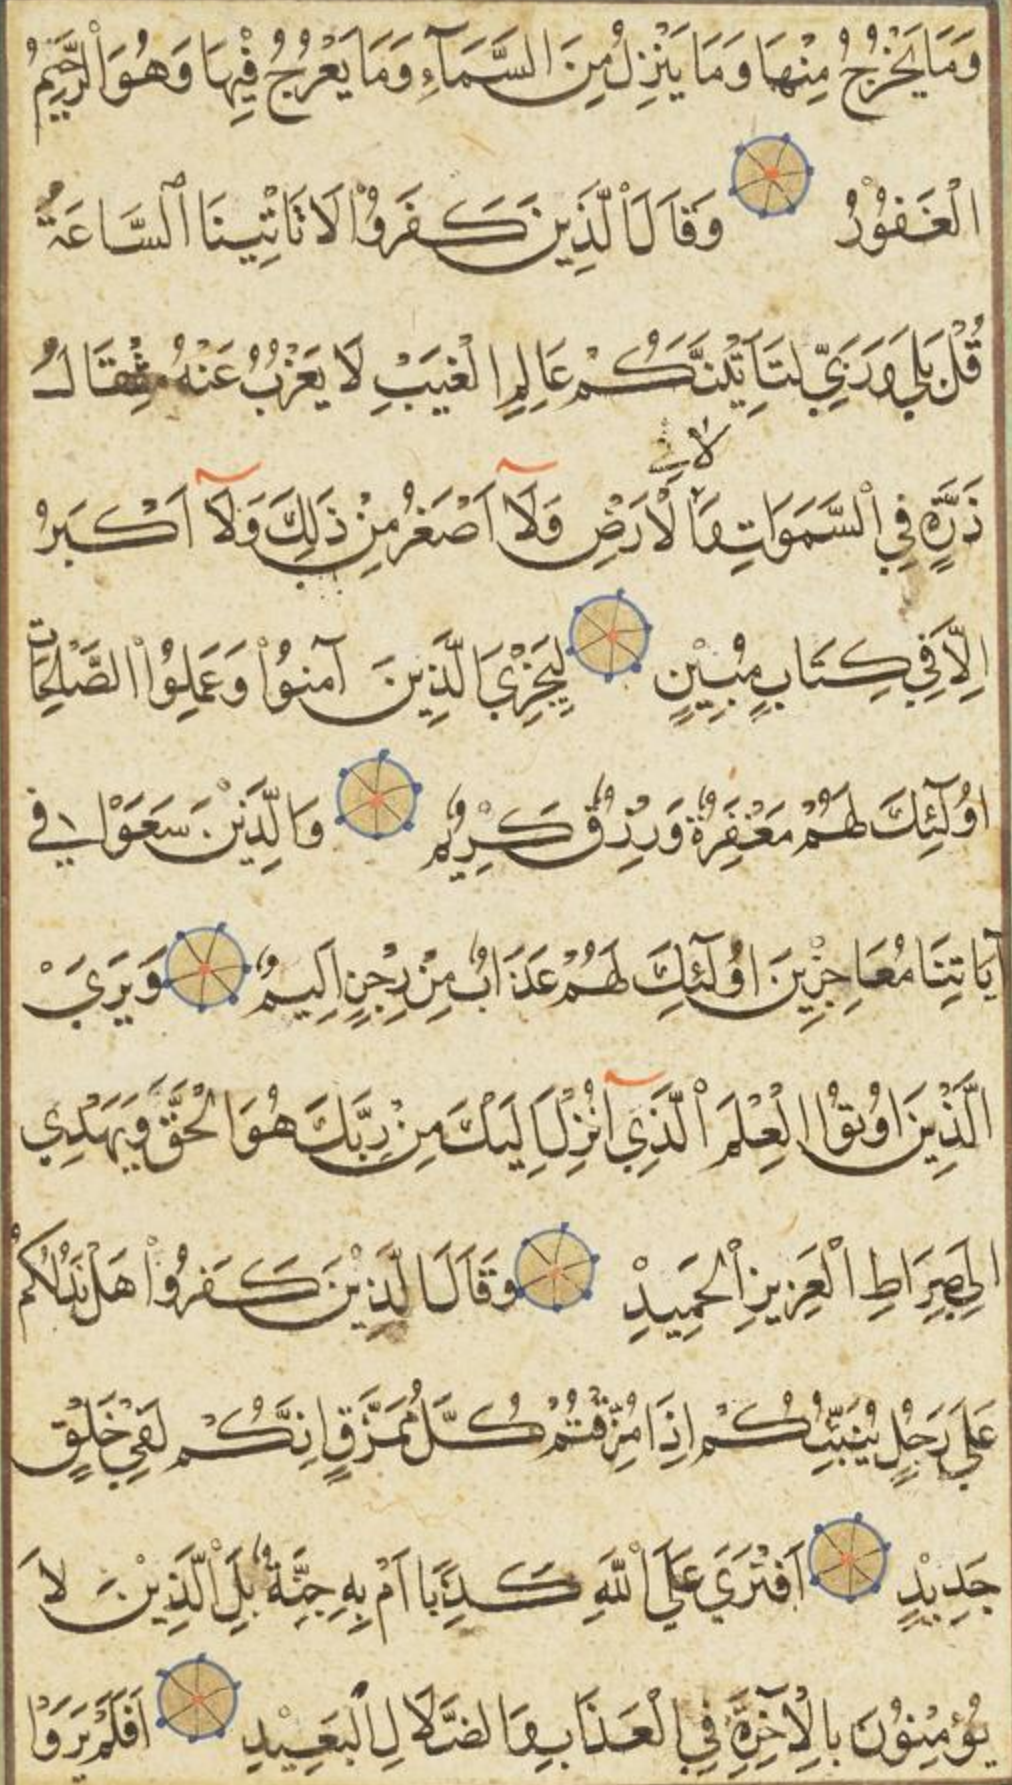 وَمَا يَخْرُجُ مِنْهَا وَمَا يَنْزِلُ مِنَ السَّمَآءِ وَمَا يَعْرُجُ فِيْهَا وَهُوَ الْرَّحِيْمُ
الْغَفُوْرُ وَقَالَ الَّذِيْنَ كَفَرُوْا لَا تَاتِيْنَا السَّاعَةُ
قُلْ بَلِي وَرَبِّيْ لَتَاتِيَنَّكُمْ عَالِمِ الْغَيْبِ لَا يَعْزُبُ عَنْهُ مِثْقَالُ
لا في
ذَرَّةٍ فِي السَّمَوَاتِ وَلَا الْاَرْضِ وَلَآ اَصْغَرُ مِنْ ذَلِكَ وَلَآ اَكْبَرُ
اِلَّا فِي كِتَابٍ مُبِيْنٍ لِيَجْزِيَ الَّذِيْنَ آمَنُوْا وَعَمِلُوْا الصَّلِحَاتِ
اُولَٓئِكَ لَهُمْ مَغْفِرَةٌ وَرِزْقٌ كَرِيْمٌ وَالَّذِيْنَ سَعَوْا في
آيَاتِنَا مُعَاجِزِيْنَ اُولَٓئِكَ لَهُمْ عَذَابٌ مِنْ رِجْزٍ اَلِيمٌ وَيَرَيْ
الَّذِيْنَ اوُتُوا الْعِلْمَ الَّذِيٓ اُنْزِلَ اِلَيْكَ مِنْ رَبِّكَ هُوَ الْحَقَّ وَيَهْدِي
اِلَي صِرَاطِ الْعَزِيزِ الْحَمِيْدِ وَقَالَ الَّذِيْنَ كَفَرُوْا هَلْ نَدُلُّكُمْ
عَلَي رَجُلٍ يُنَبِّئُكُمْ اِذَا مُزِّقْتُمْ كُلَّ مُمَزَّقٍ اِنَّكُمْ لَفِيْ خَلْقٍ
جَدِيْدٍ اَفْتَرَي عَلَي اللَّهِ كَذِبًا اَمْ بِهِ جِنَّةٌ بَلِ الَّذِيْنَ لَا
يُؤْمِنُوْنَ بِالْآخِرَةِ فِي الْعَذَابِ وَالضَّلَالِ الْبَعِيْدِ اَفَلَمْ يَرَوْا